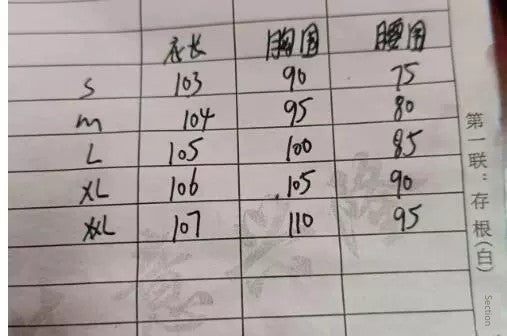 衣长 胸围 腰围
S 103 90 75
m 104 95 80
L 105 100 85
XL 106 105 90
XXL 107 110 95
第一联：存根(白)
Section